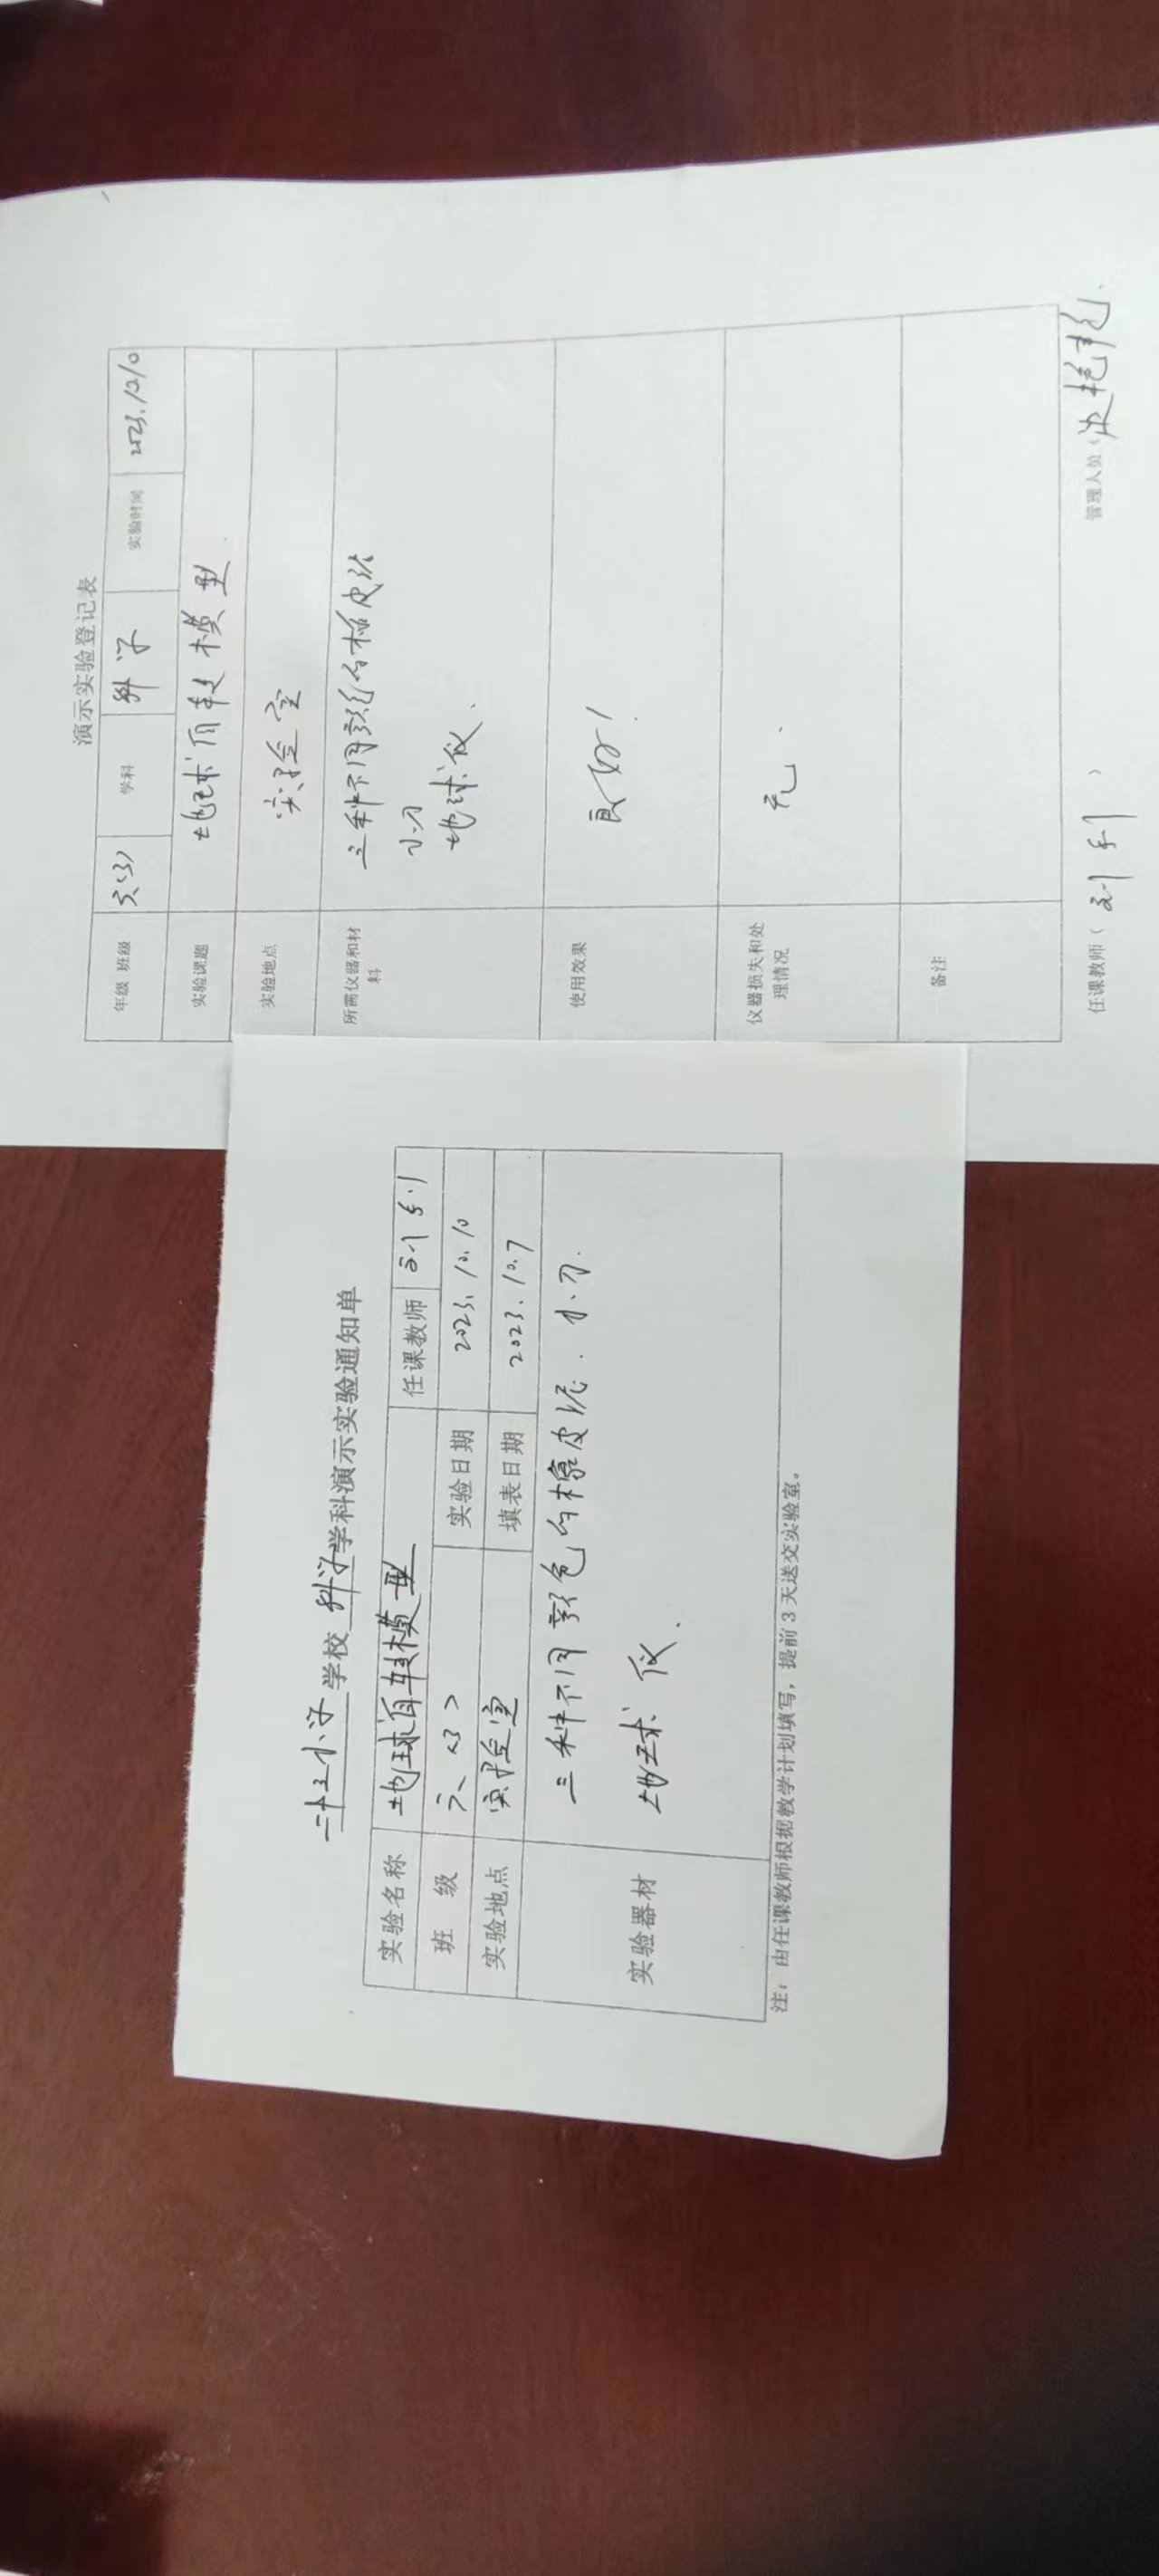 二十五小学学校 科学学科演示实验通知单
实验名称 地球自转模型 任课教师
班 级 六<3> 实验日期 2023.10.10
实验地点 实验室 填表日期 2023.10.7
实验器材 三种不同颜色的橡皮泥、小刀
地球仪、
注：由任课教师根据教学计划填写，提前 3 天送交实验室。
演示实验登记表
年级 班级 六(3) 学科 科学 实验时间
实验课题 地球自转模型
实验地点 实验室
所需仪器和材料 三种不同颜色的橡皮泥
小刀
地球仪、
使用效果 良好！
仪器损失和处理情况 无、
备注
任课教师（ ） 管理人员（